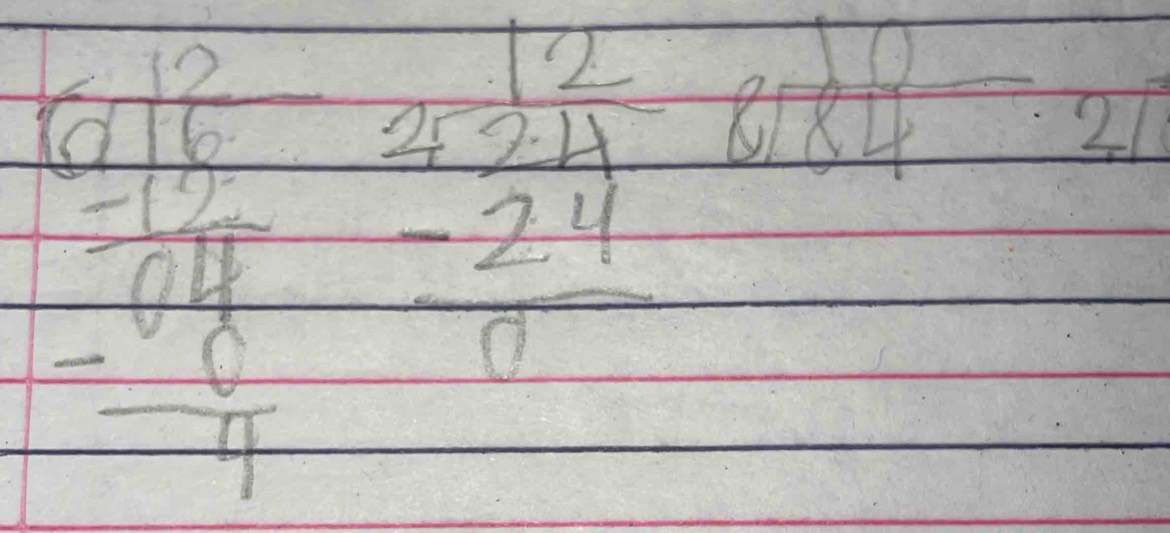 12 12 10
6)16 2)24 8)84 2)
-12 -24
04 0
- 0
4